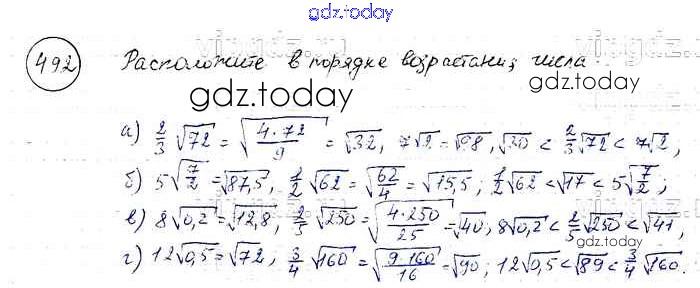 gdz.today
492 Расположите в порядке возрастания; числа
gdz.today
а) 2/3 √72 = √(4·72/9) = √32, 7√2 = √98, √30 < 2/3 √72 < 7√2,
б) 5√(7/2) = √87,5, 1/2 √62 = √(62/4) = √15,5; 1/2 √62 < √17 < 5√(7/2);
в) 8√0,2 = √12,8, 2/5 √250 = √(4·250/25) = √40; 8√0,2 < 2/5 √250 < √41,
gdz.today
г) 12√0,5 = √72, 3/4 √160 = √(9·160/16) = √90; 12√0,5 < √89 < 3/4 √160.